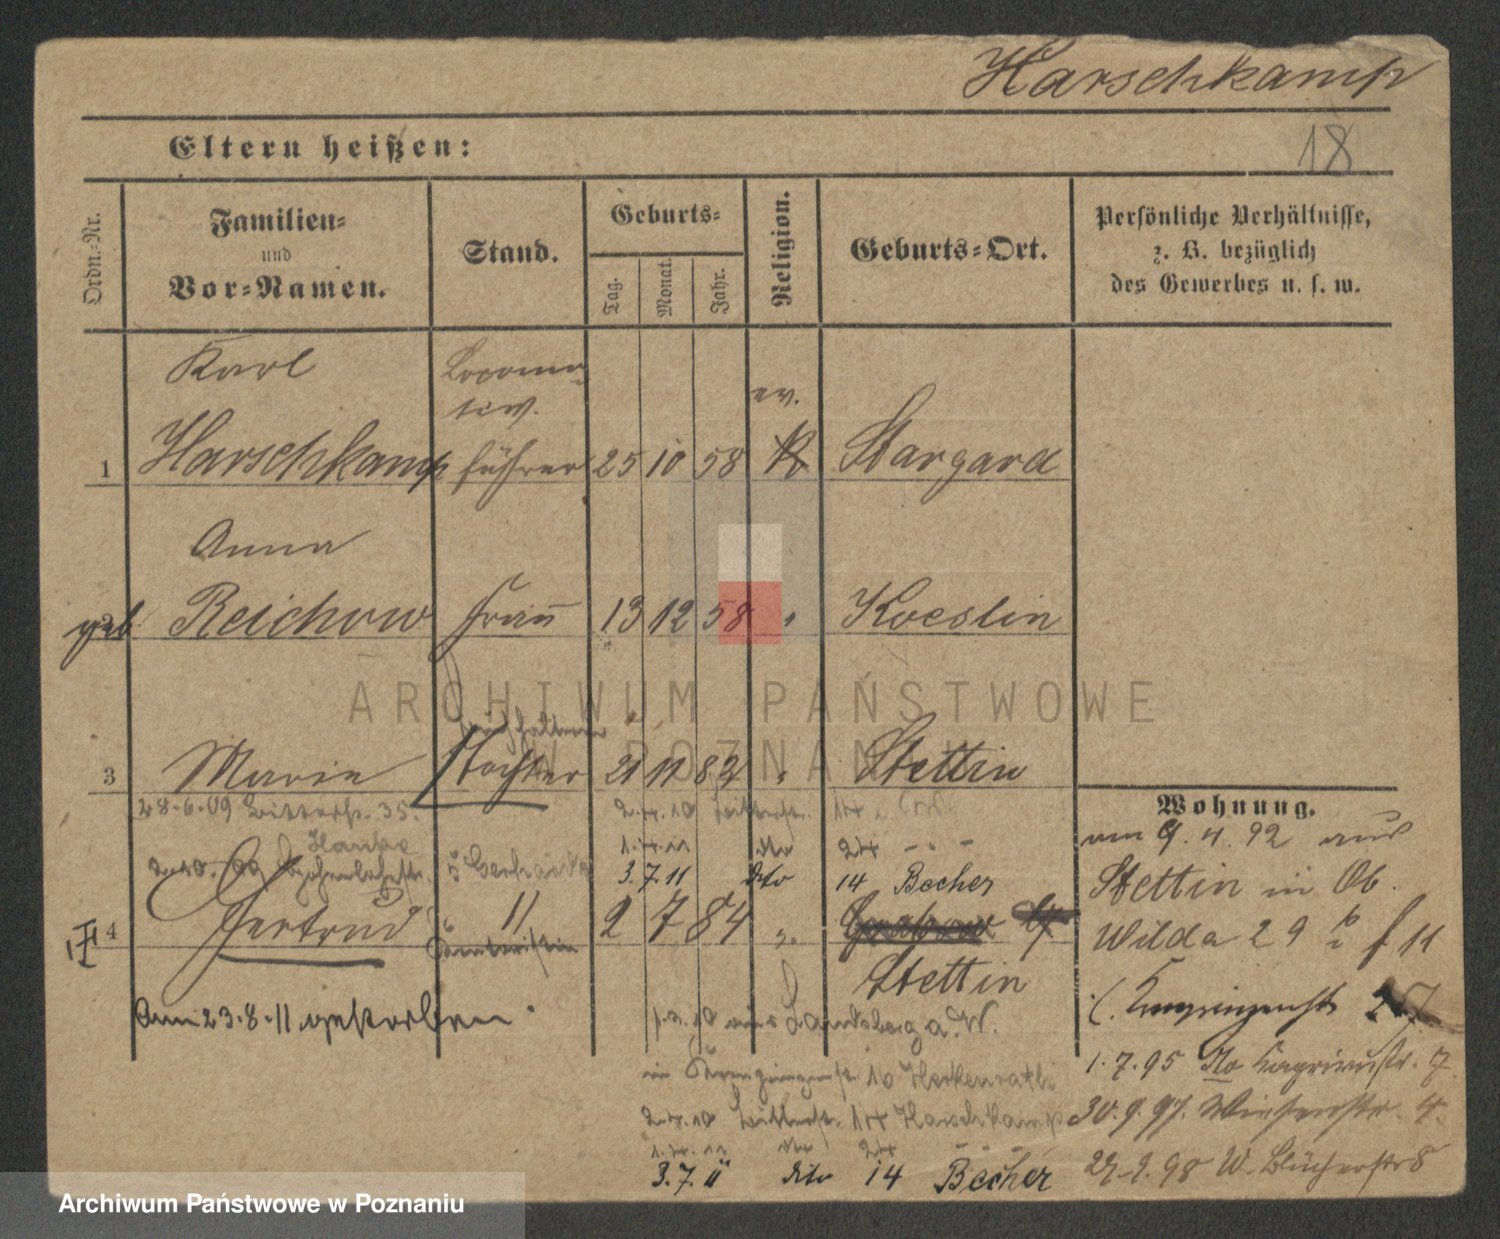 Harschkamp
Eltern heißen:
18
Ordn.-Nr.
Familien-
und
Vor-Namen.
Stand.
Geburts-
Tag.
Monat.
Jahr.
Religion.
Geburts-Ort.
Persönliche Verhältnisse,
z. B. bezüglich
des Gewerbes u. s. w.
Karl
Locomo-
tiv.
ev.
1 Harschkamp führer 25 10 58 Stargard
Anna
geb. 2 Reichow Frau 13 12 58 " Koeslin
ARCHIWUM PAŃSTWOWE
W POZNANIU
Buchhalterin
3 Marie Tochter 21 11 82 " Stettin
28.6.09 35.
2.4.10 14
1.4.11 dto 24
3.7.11 dto 14 Becher
4 Gertrud " 2 7 84 "
Stettin
Am 23.8.11 gestorben.
Wohnung.
am 9.4.92 aus
Stettin in Ob.
Wilda 29 f 11
1.7.95 No 7
30.9.97. 4.
29.9.98 W. Blücherstr 8
aus Landsberg a. W.
in 10 Herkenrath
2.4.10 14 Harschkamp
1.4.11 dto 24
3.7.11 dto 14 Becher
Archiwum Państwowe w Poznaniu